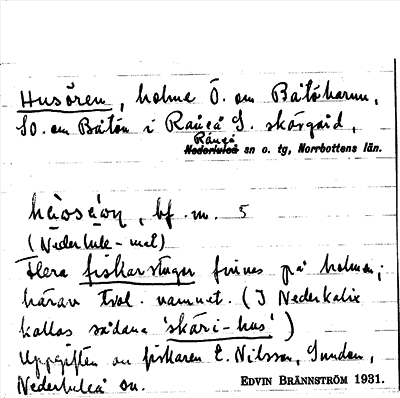 Husören, holme Ö. om Båtöharun,
SO. om Båtön i Råneå S. skärgård,
Råneå
Nederluleå sn o. tg, Norrbottens län.
bf. m. 5
(Nederlule-mål)
Flera fiskarstugor finnas på holmen;
härav trol. namnet. (I Nederkalix
kallas sådana 'skäri-hus')
Uppgiften av fiskaren E. Nilsson, Sunden,
Nederluleå sn.
EDVIN BRÄNNSTRÖM 1931.